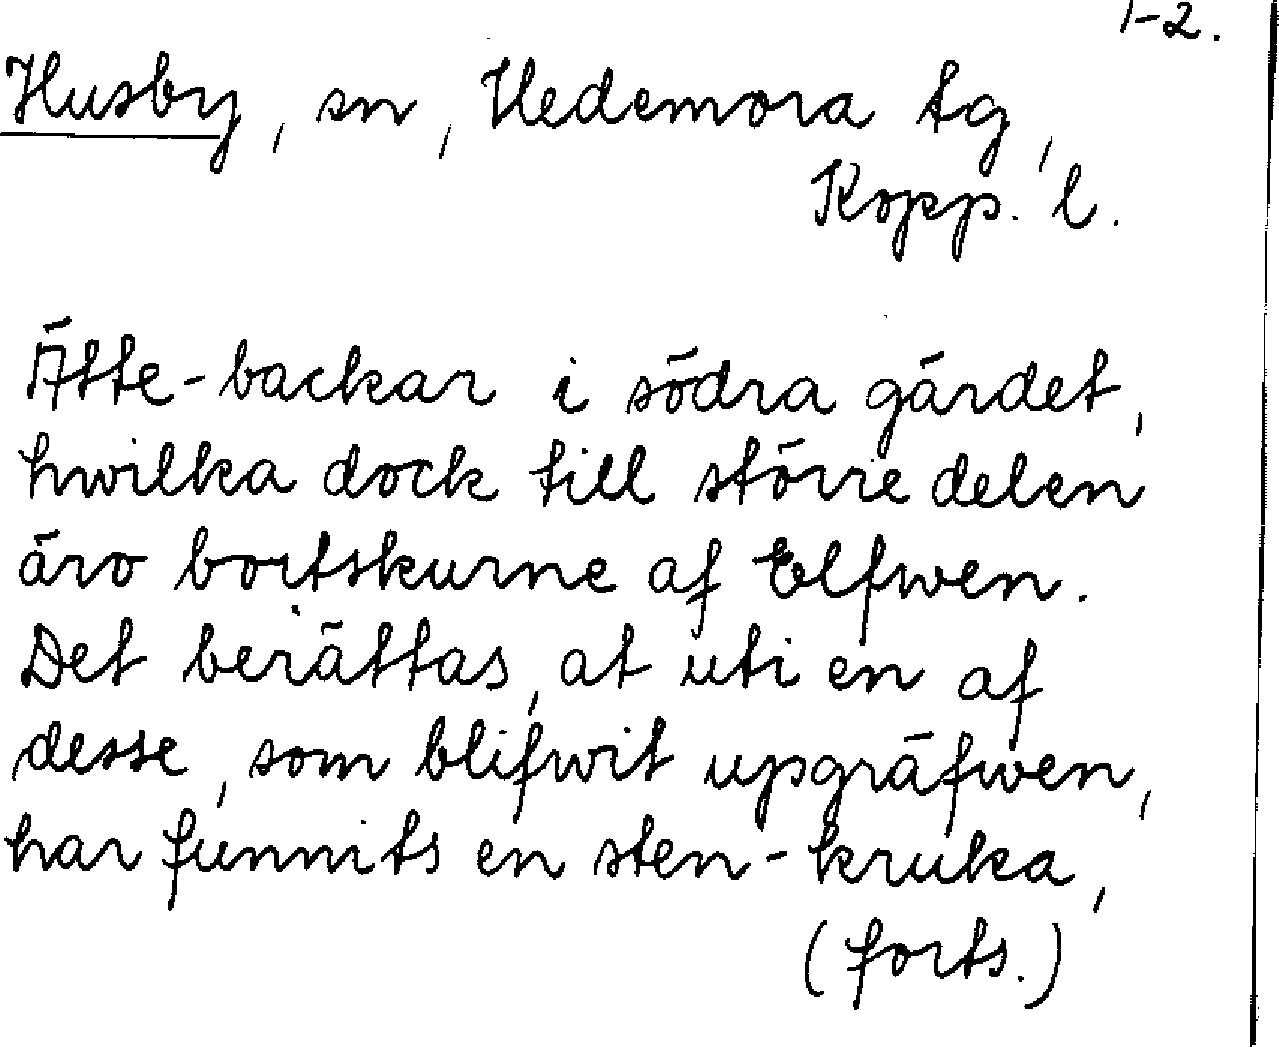 1-2.
Husby, sn, Hedemora tg,
Kopp. l.
Ätte-backar i södra gärdet,
hwilka dock till större delen
äro bortskurne af Elfwen.
Det berättas, at uti en af
desse, som blifwit upgräfwen,
har funnits en sten-kruka,
(forts.)